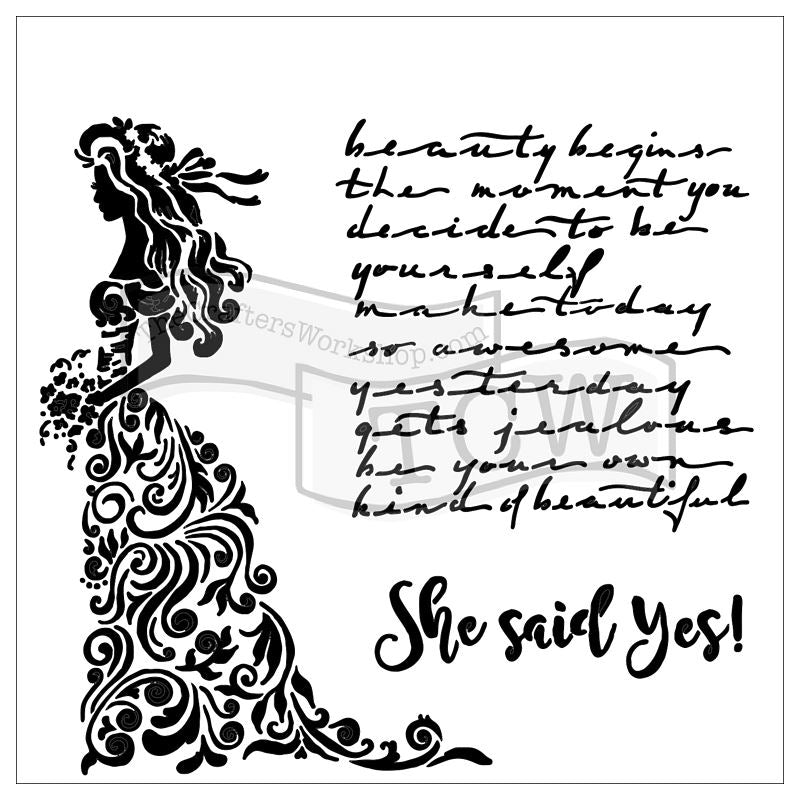 beauty begins
the moment you
decide to be
yourself
make today
so awesome
yesterday
gets jealous
be your own
kind of beautiful
She said Yes!
theCraftersWorkshop.com
TCW